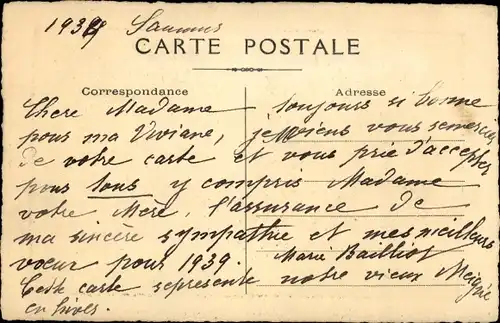 1939 Saumur
CARTE POSTALE
Correspondance Adresse
Chere Madame toujours si bonne
pour ma Viviane, je viens vous remercier
de votre carte et vous prie d'accepter
pour tous y compris Madame
votre Mere, l'assurance de
ma sincère sympathie et mes meilleurs
vœux pour 1939. Marie Bailliot
Cette carte represente notre vieux
en hiver.